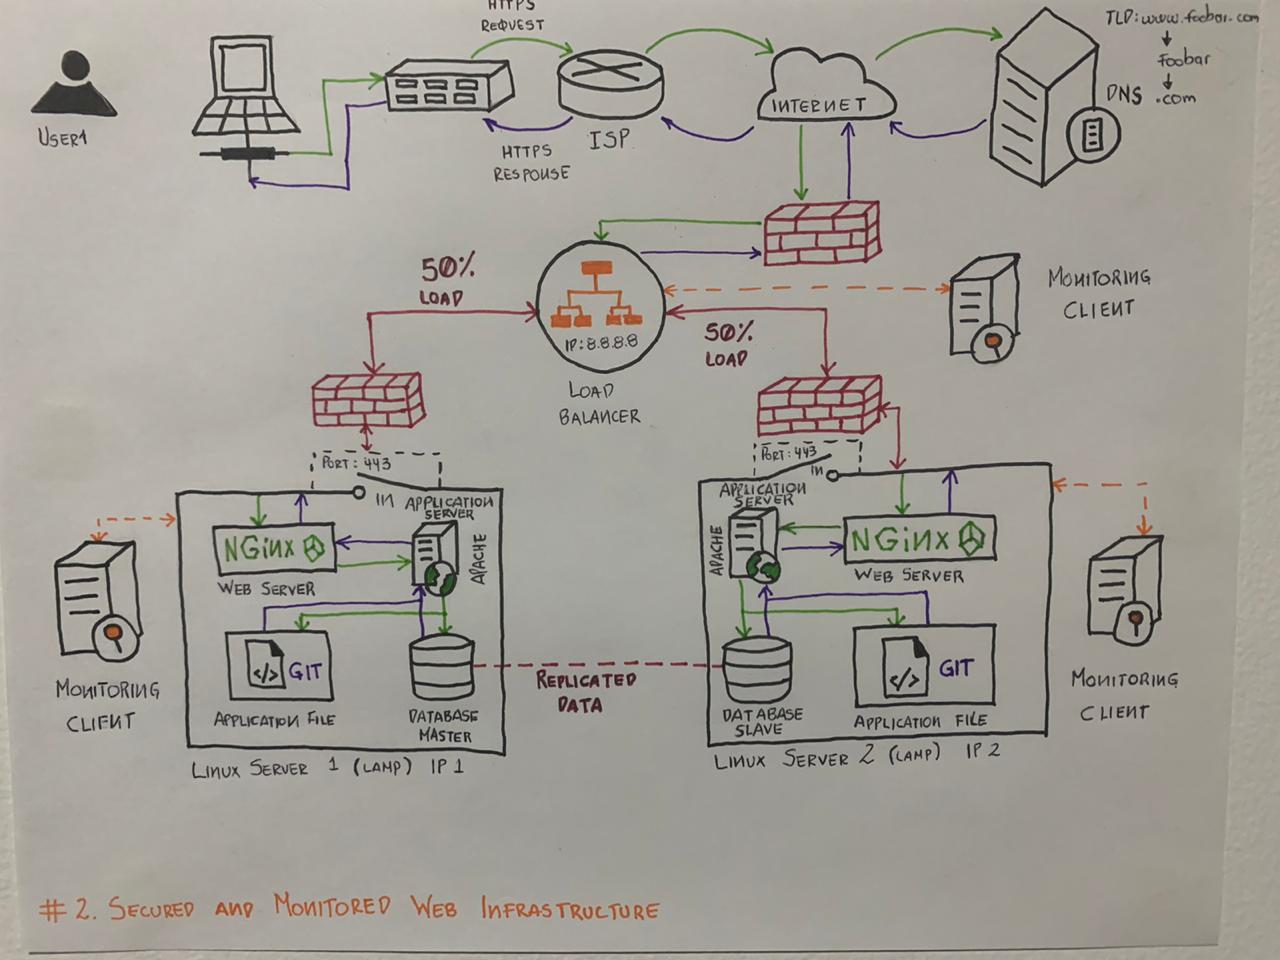 HTTPS
REQUEST
TLD: www.foobar.com
Foobar
.com
DNS
USER1
INTERNET
ISP
HTTPS
RESPONSE
50%
LOAD
50%
LOAD
IP:8.8.8.8
LOAD
BALANCER
MONITORING
CLIENT
PORT: 443
IN
APPLICATION
SERVER
APACHE
NGinx
WEB SERVER
</> GIT
APPLICATION FILE
DATABASE
MASTER
LINUX SERVER 1 (LAMP) IP 1
MONITORING
CLIENT
REPLICATED
DATA
PORT: 443
IN
APPLICATION
SERVER
APACHE
NGinx
WEB SERVER
</> GIT
DATABASE
SLAVE
APPLICATION FILE
LINUX SERVER 2 (LAMP) IP 2
MONITORING
CLIENT
# 2. SECURED AND MONITORED WEB INFRASTRUCTURE